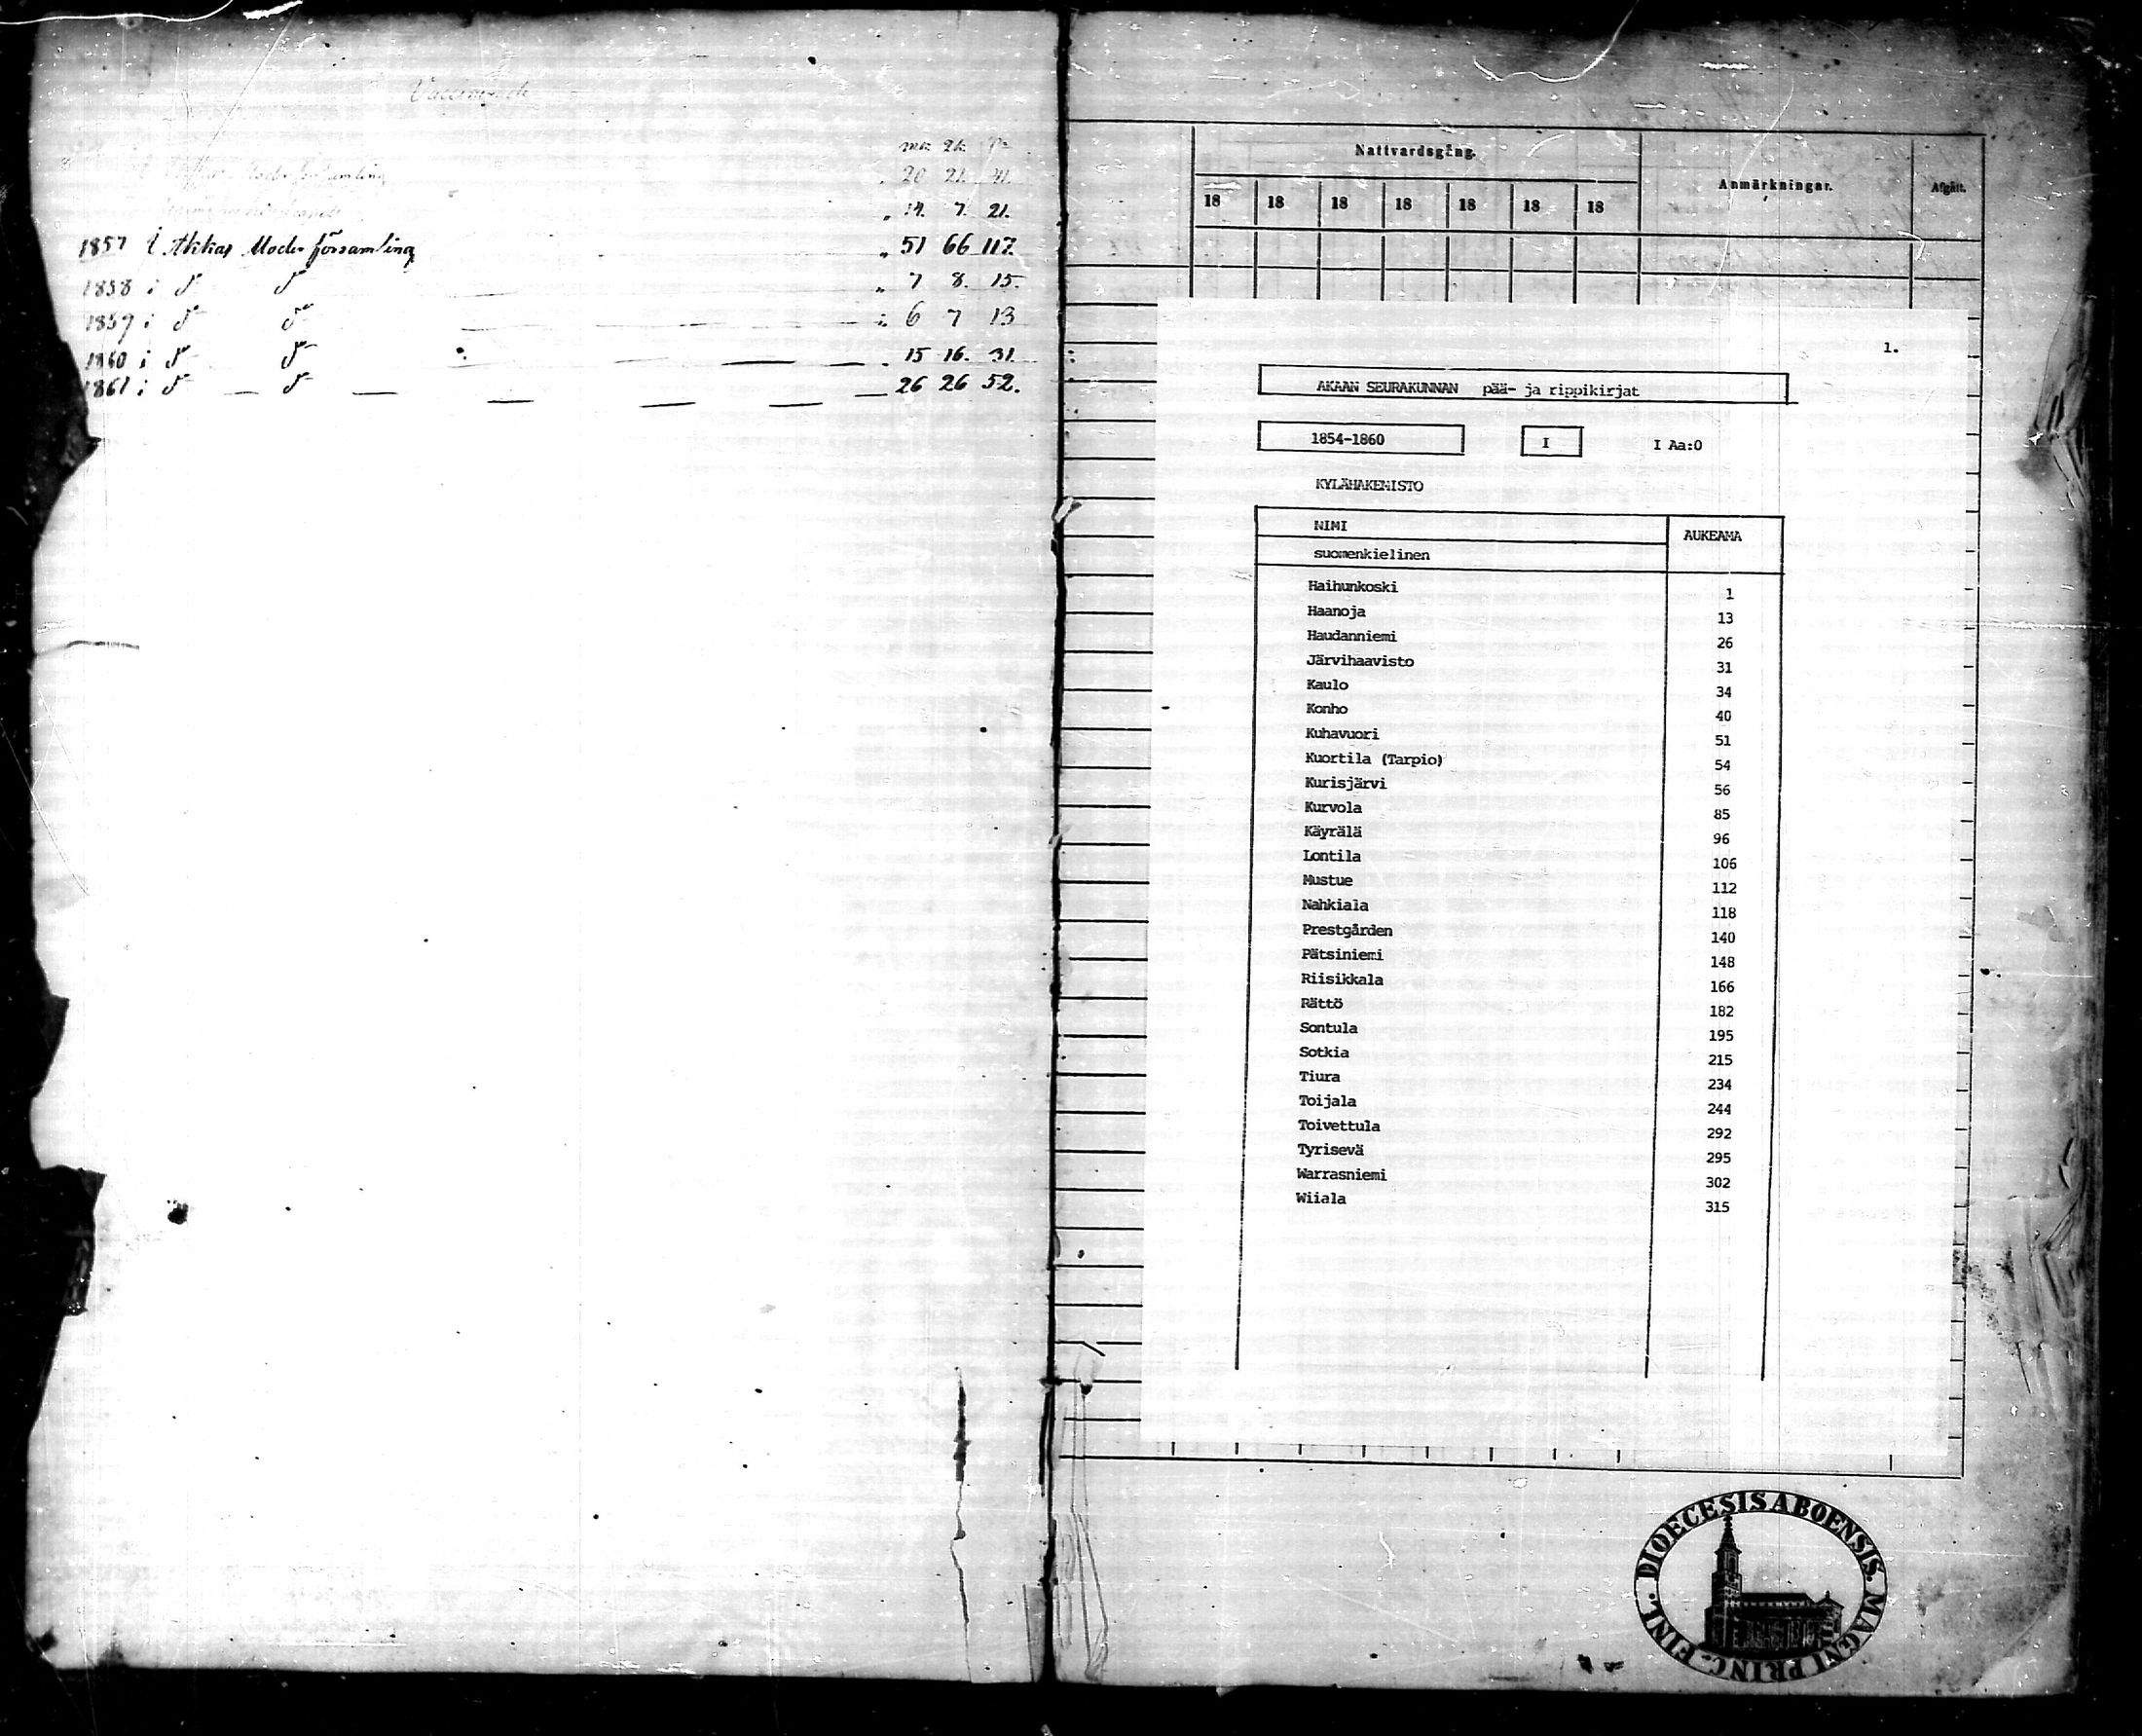 mk. qk. Sa
Moderförsamling 20 21. 41.
14. 7. 21.
1857 i Akkas Moderförsamling 51 66 117.
1858 i d:o d:o 7 8. 15.
1859 i d:o d:o 6 7 13
1860 i d:o d:o 15 16. 31.
1861 i d:o d:o 26 26 52.
Nattvardsgång.
Anmärkningar.
Afgått.
18 18 18 18 18 18 18
1.
AKAAN SEURAKUNNAN pää- ja rippikirjat
1854-1860 I I Aa:0
KYLÄHAKEMISTO
NIMI AUKEAMA
suomenkielinen
Haihunkoski 1
Haanoja 13
Haudanniemi 26
Järvihaavisto 31
Kaulo 34
Konho 40
Kuhavuori 51
Kuortila (Tarpio) 54
Kurisjärvi 56
Kurvola 85
Käyrälä 96
Lontila 106
Mustue 112
Nahkiala 118
Prestgården 140
Pätsiniemi 148
Riisikkala 166
Rättö 182
Sontula 195
Sotkia 215
Tiura 234
Toijala 244
Toivettula 292
Tyrisevä 295
Warrasniemi 302
Wiiala 315
DIOECESIS ABOENSIS. MAGNI PRINC. FINL.